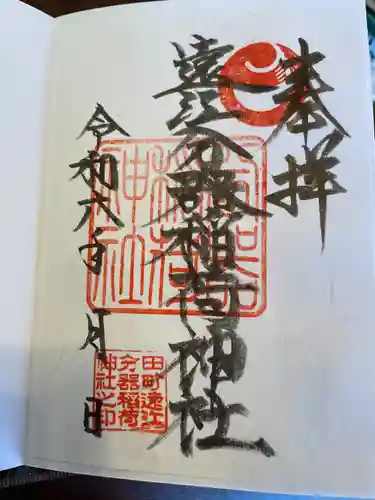 奉拝
遠江分器稲荷神社
令和六年 月 日
田町遠江
分器稲荷
神社之印